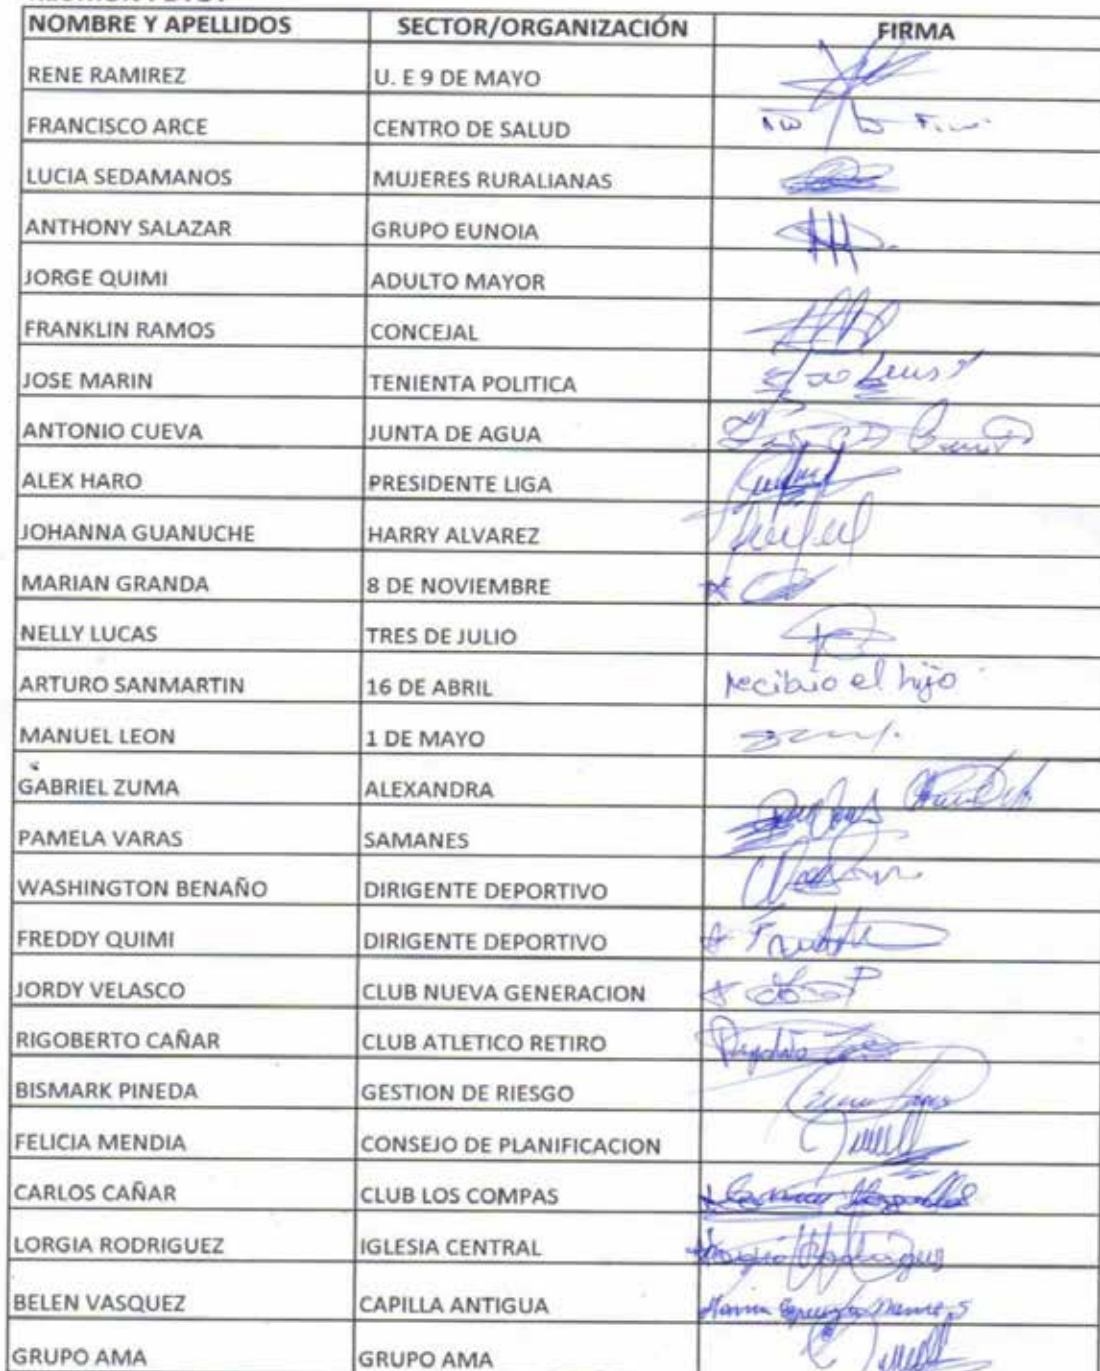 NOMBRE Y APELLIDOS SECTOR/ORGANIZACIÓN FIRMA
RENE RAMIREZ U. E 9 DE MAYO
FRANCISCO ARCE CENTRO DE SALUD
LUCIA SEDAMANOS MUJERES RURALIANAS
ANTHONY SALAZAR GRUPO EUNOIA
JORGE QUIMI ADULTO MAYOR
FRANKLIN RAMOS CONCEJAL
JOSE MARIN TENIENTA POLITICA
ANTONIO CUEVA JUNTA DE AGUA
ALEX HARO PRESIDENTE LIGA
JOHANNA GUANUCHE HARRY ALVAREZ
MARIAN GRANDA 8 DE NOVIEMBRE
NELLY LUCAS TRES DE JULIO
ARTURO SANMARTIN 16 DE ABRIL recibio el hijo
MANUEL LEON 1 DE MAYO
GABRIEL ZUMA ALEXANDRA
PAMELA VARAS SAMANES
WASHINGTON BENAÑO DIRIGENTE DEPORTIVO
FREDDY QUIMI DIRIGENTE DEPORTIVO
JORDY VELASCO CLUB NUEVA GENERACION
RIGOBERTO CAÑAR CLUB ATLETICO RETIRO
BISMARK PINEDA GESTION DE RIESGO
FELICIA MENDIA CONSEJO DE PLANIFICACION
CARLOS CAÑAR CLUB LOS COMPAS
LORGIA RODRIGUEZ IGLESIA CENTRAL
BELEN VASQUEZ CAPILLA ANTIGUA
GRUPO AMA GRUPO AMA